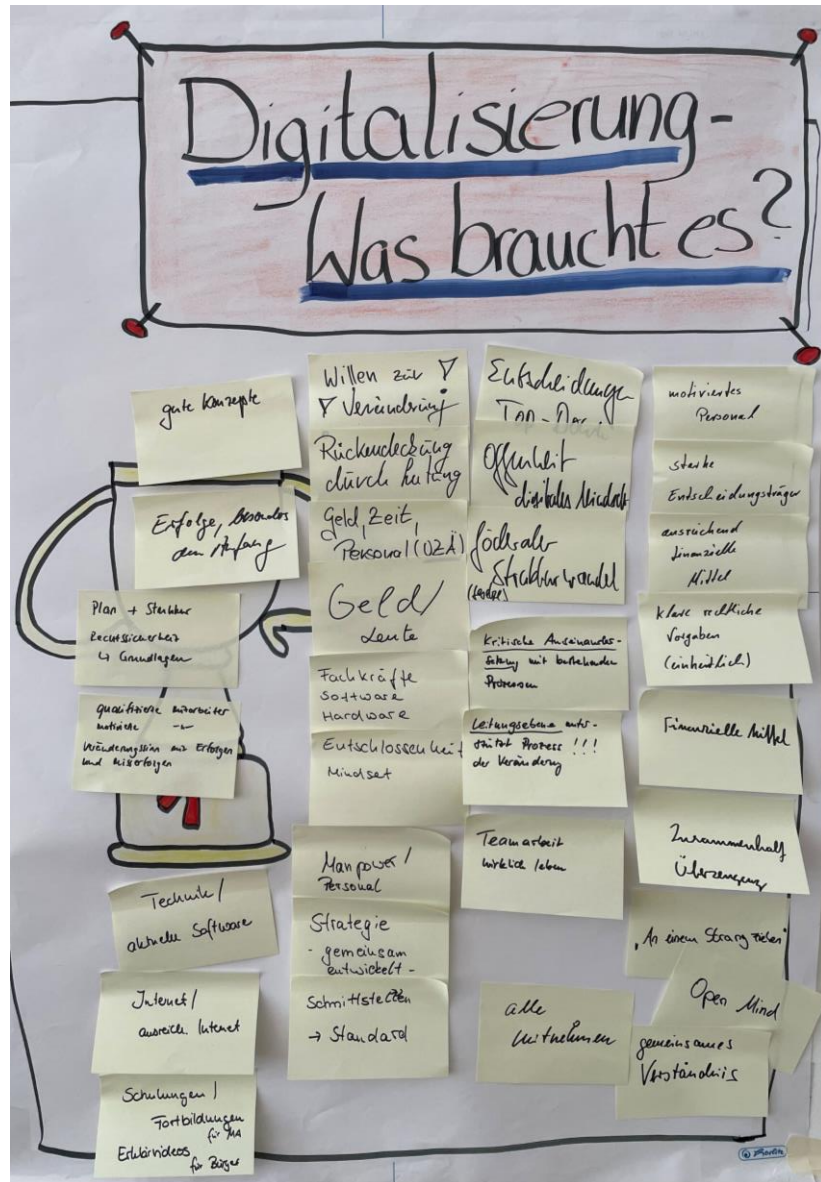 Digitalisierung -
Was braucht es?
gute Konzepte
Erfolge, besonders
am Anfang
Plan + Struktur
Rechtssicherheit
↳ Grundlagen
qualifizierte Mitarbeiter
motivierte -"-
Veränderungssinn mit Erfolgen
und Misserfolgen
Technik /
aktuelle Software
Internet /
ausreich. Internet
Schulungen /
Fortbildungen
für MA
Erklärvideos
für Bürger
Willen zur
Veränderung
Rückendeckung
durch Leitung
Geld, Zeit,
Personal (OZÄ)
Geld /
Leute
Fachkräfte
Software
Hardware
Entschlossenheit
Mindset
Manpower /
Personal
Strategie
- gemeinsam
entwickelt -
Schnittstellen
→ Standard
Entscheidungen
Top-Down
Offenheit
digitales Mindset
föderaler
Strukturwandel
Kritische Auseinander-
setzung mit bestehenden
Prozessen
Leitungsebene unter-
stützt Prozess !!!
der Veränderung
Teamarbeit
wirklich leben
alle
mitnehmen
motiviertes
Personal
starke
Entscheidungsträger
ausreichend
finanzielle
Mittel
klare rechtliche
Vorgaben
(einheitlich)
Finanzielle Mittel
Zusammenhalt
Überzeugung
"An einem Strang ziehen"
Open Mind
gemeinsames
Verständnis